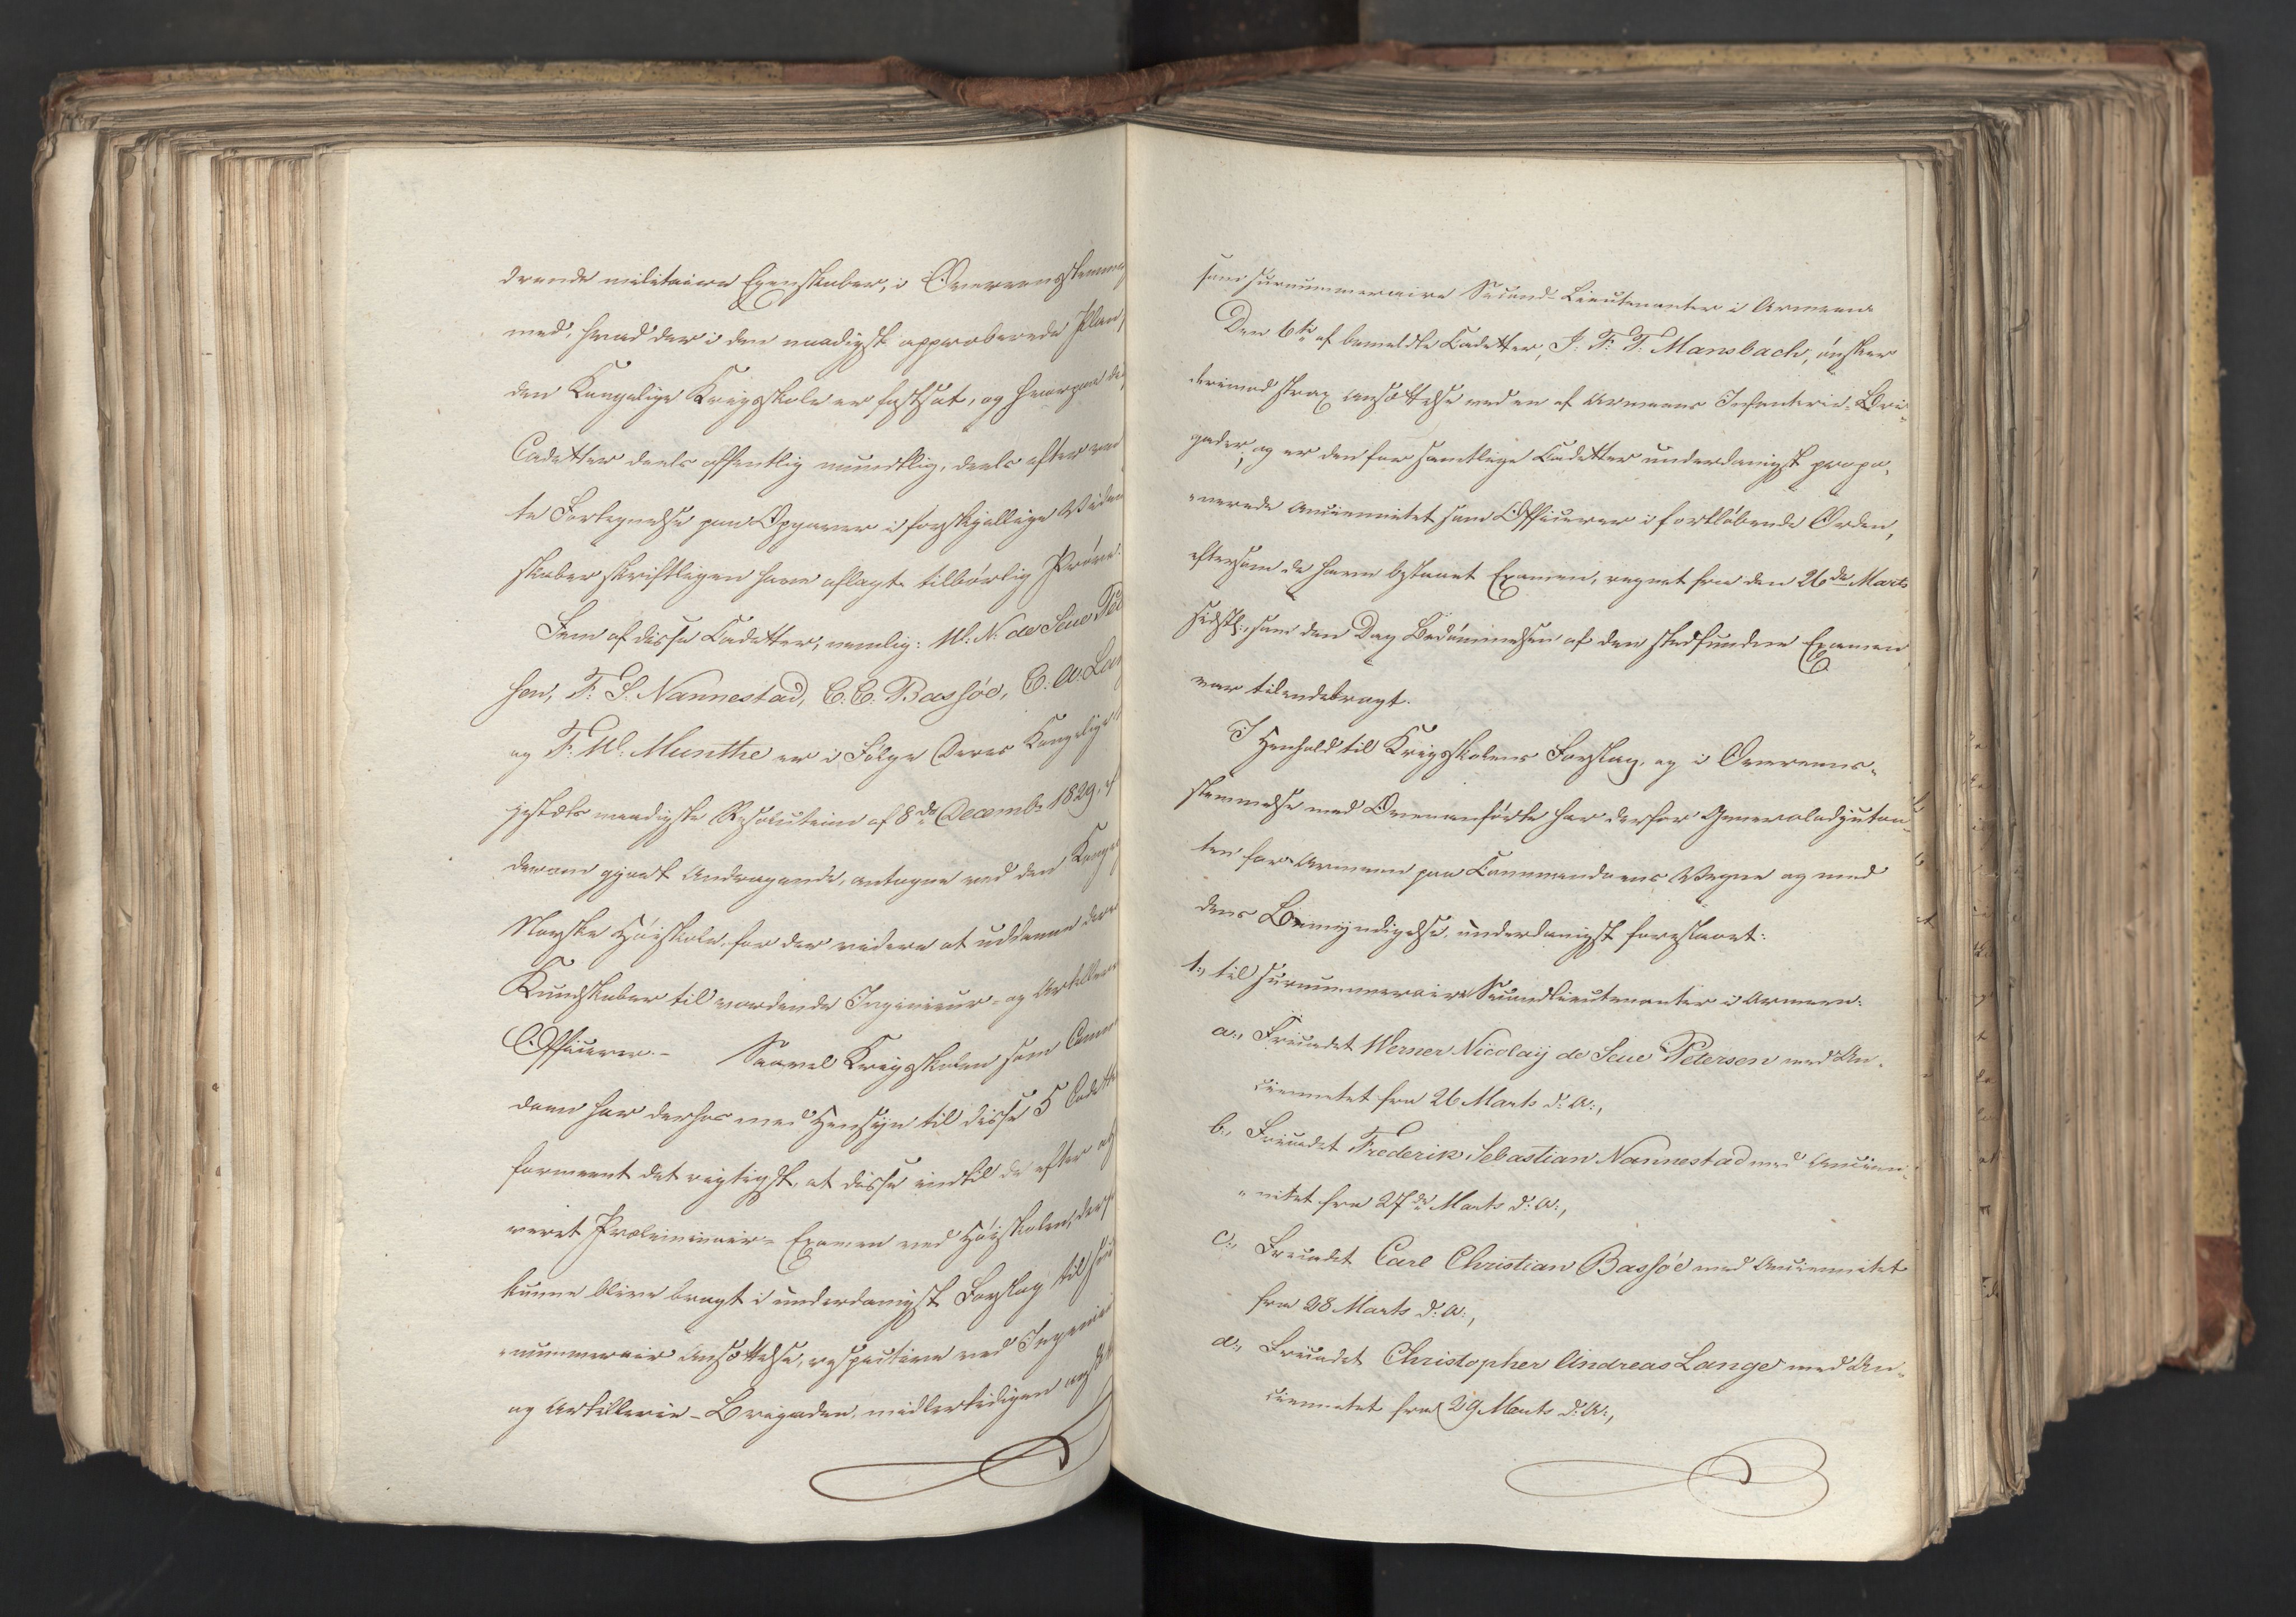 drende militaire Egenskaber, i Overeensstemme
med, hvad der i den naadigst approberede Plan
den Kongelige Krigsskole er fastsat, og hvorpaa de
Cadetter deels offentlig mundtlig, deels efter
te Fortegnelse paa Opgaver i forskjællige Viden
skaber skriftligen have aflagt tilbørlig Prøve.
Fem af disse Cadetter, nemlig: W: N: de Seue Pe
sen, F: S. Nannestad, C. C. Bassöe, C. A. Lan
og F: W: Munthe er i Følge Deres Kongelige
jestæts naadigste Resolution af 8de Decemb: 1829,
derom gjort Andragende, antagne ved den Konge
Norske Høiskole, for der videre at uddanne deres
Kundskaber til vordende Ingenieur- og Artilleri
Officerer.- Saavel Krigsskolen som Comm
doen har derhos med Hensyn til disse 5 Cadett
formeent det rigtigst, at disse indtil de efter
veret Præliminair-Examen ved Høiskolen, der
kunne blive bragt i underdanigst Forslag til
nummerair Ansættelse, respective ved Ingenieur
og Artillerie-Brigaden, midlertidigen
som surnummeraire Second-Lieutenanter i Armeen.
Den 6te af bemeldte Cadetter, J: F: T: Mansbach, ønsker
derimod strax Ansættelse ved en af Armeens Infanterie-Bri-
gader, og er den for samtlige Cadetter underdanigst propo-
nerede Anciennitet som Officerer i fortløbende Orden,
eftersom de have bestaaet Examen, regnet fra den 26de Marts
sidstl:, som den Dag Bedømmelsen af den stedfundne Examen
var tilendebragt.
I Henhold til Krigsskolens Forslag, og i Overeens-
stemmelse med Ovenanførte har derfor Generaladjutan-
ten for Armeen paa Commandoens Vegne og med
dens Bemyndigelse, underdanigst foreslaaet:
1., til surnummeraire Secondlieutenanter i Armeen:
a., Fricadet Werner Nicolaÿ de Seue Petersen med An-
ciennetet fra 26 Marts d: A:,
b., Fricadet Frederik Sebastian Nannestad med Ancien-
nitet fra 27de Marts d: A:,
c., Fricadet Carl Christian Bassöe med Anciennitet
fra 28 Marts d: A:,
d., Fricadet Christopher Andreas Lange med An-
ciennetet fra 29 Marts d: A:,